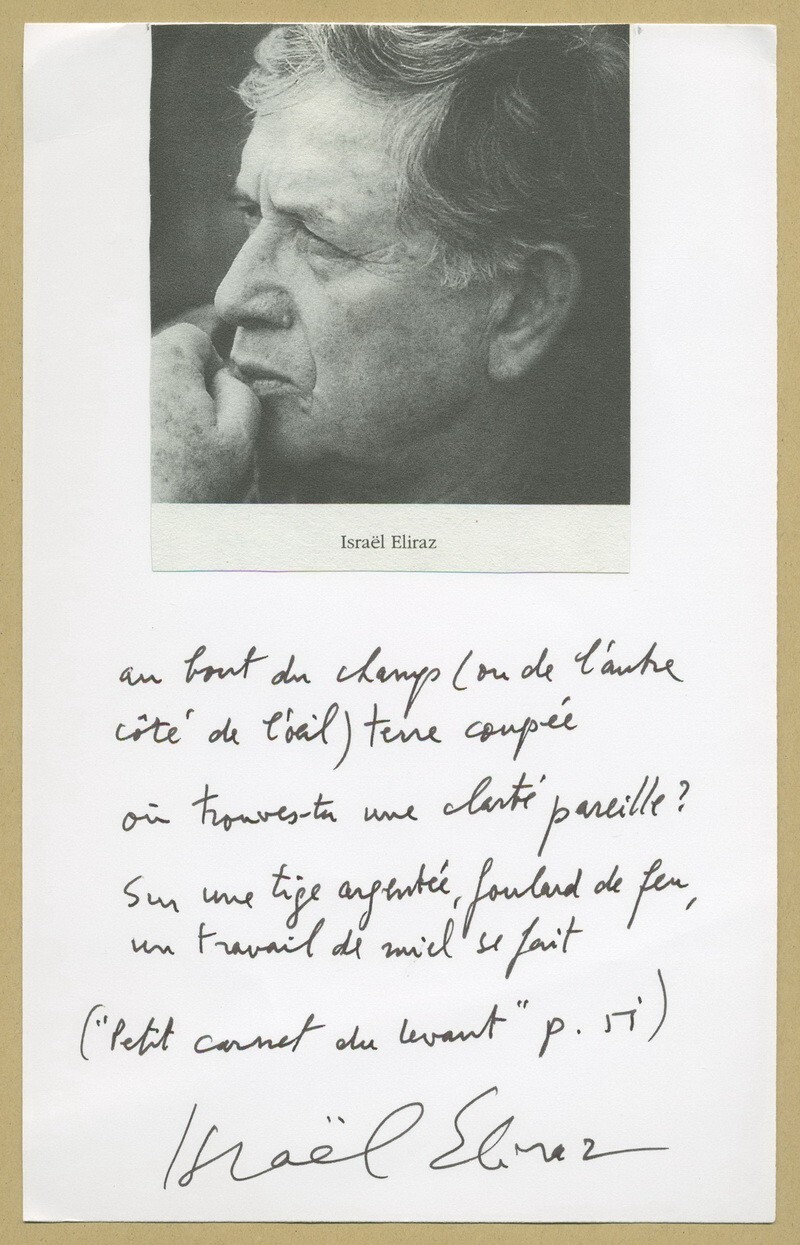 Israël Eliraz
au bout du champ (ou de l'autre
côté de l'œil) terre coupée
où trouves-tu une clarté pareille?
Sur une tige argentée, foulard de feu,
un travail de miel se fait
("Petit carnet du levant" p. 51)
Israël Eliraz